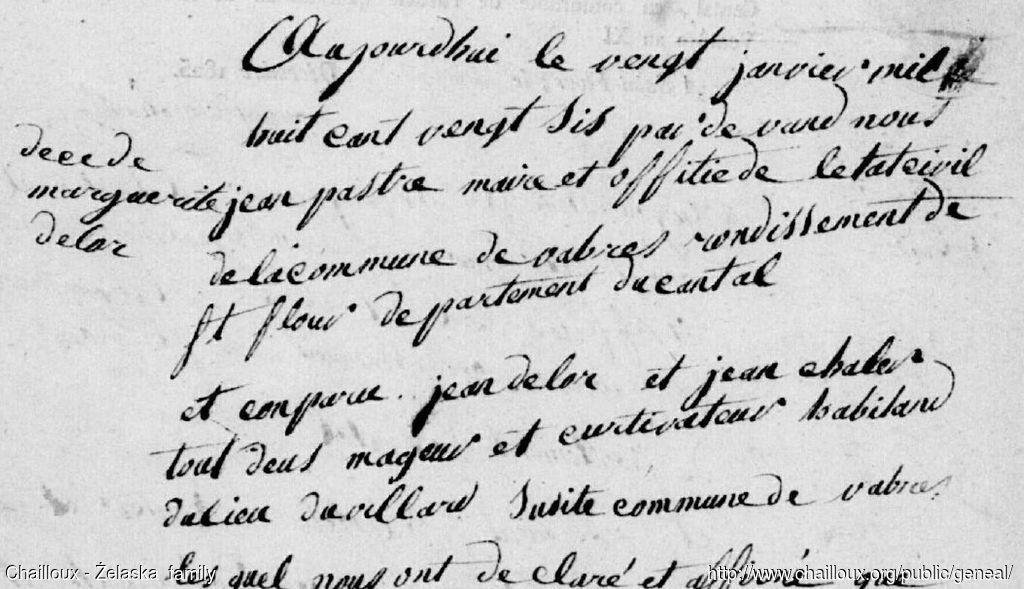 Aujourdhui le vengt janvier mil
huit cant vengt sis par devand nous
decede
marguerite
delor
jean pastre maire et offitie de letatcivil
delacommune de vabres rondissement de
st flour departement ducantal
et conparu. jean delor et jean chaler
tout deus mageur et curtivateur habitand
dulieu duvillard susite commune de vabres
les quel nous ont declaré et affirmé que
Chailloux - Želaska family
http://www.chailloux.org/public/geneal/